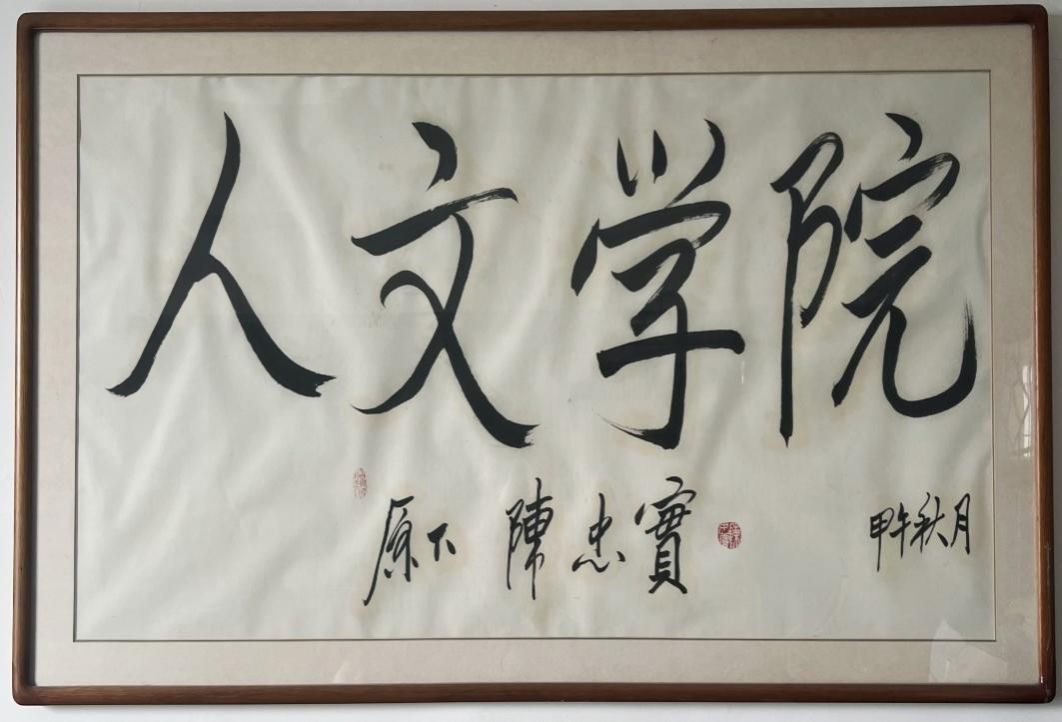 人文学院
原下 陳忠實 甲午秋月